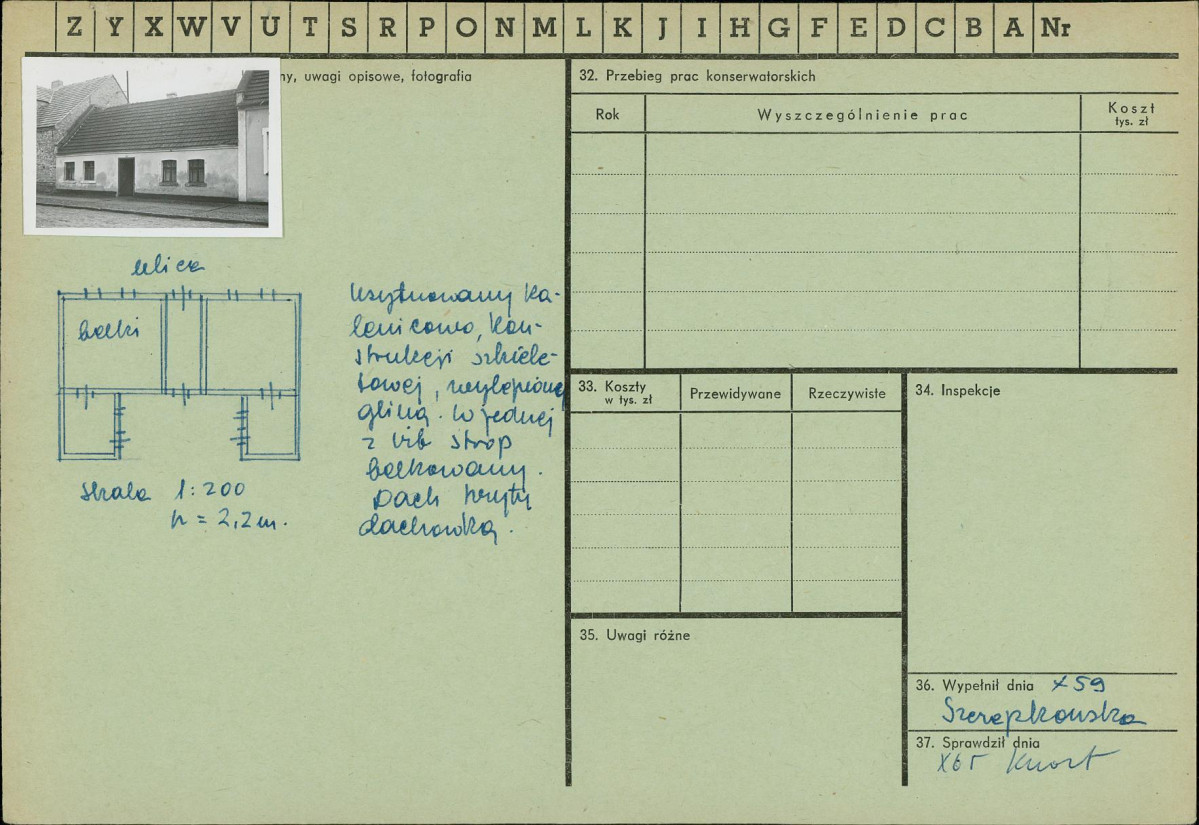 Z Y X W V U T S R P O N M L K J I H G F E D C B A Nr
ny, uwagi opisowe, fotografia
ulica
belki
skala 1:200
h = 2,2 m.
Usytuowany ka-
lenicowo, kon-
strukcji szkiele-
towej, wylepioną
gliną. W jednej
z izb strop
belkowany.
Dach kryty
dachówką.
32. Przebieg prac konserwatorskich
Rok
Wyszczególnienie prac
Koszt
tys. zł
33. Koszty
w tys. zł
Przewidywane
Rzeczywiste
34. Inspekcje
35. Uwagi różne
36. Wypełnił dnia X 59
37. Sprawdził dnia